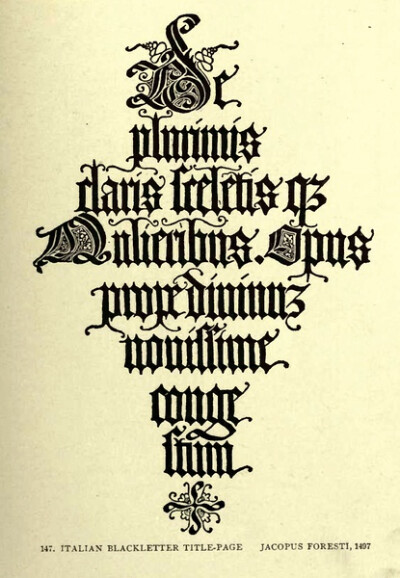 De
plurimis
claris sceletisqꝫ
Mulieribus. Opus
prope diuinuꝫ
nouissime
conge
stum
147. ITALIAN BLACKLETTER TITLE-PAGE JACOPUS FORESTI, 1497